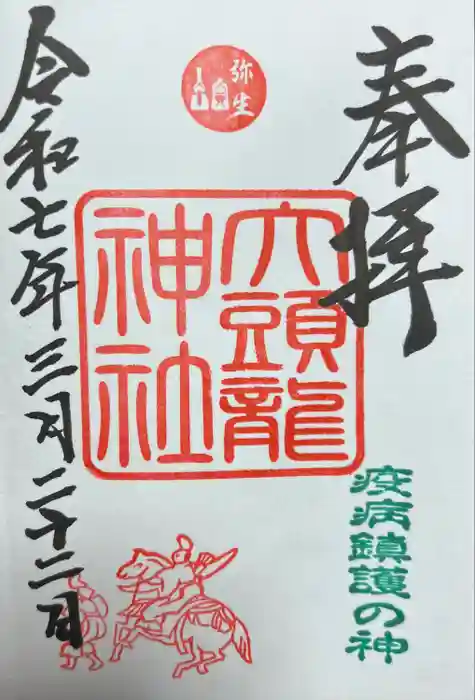 奉拝
疫病鎮護の神
弥生
六頭龍
神社
令和七年三月二十二日